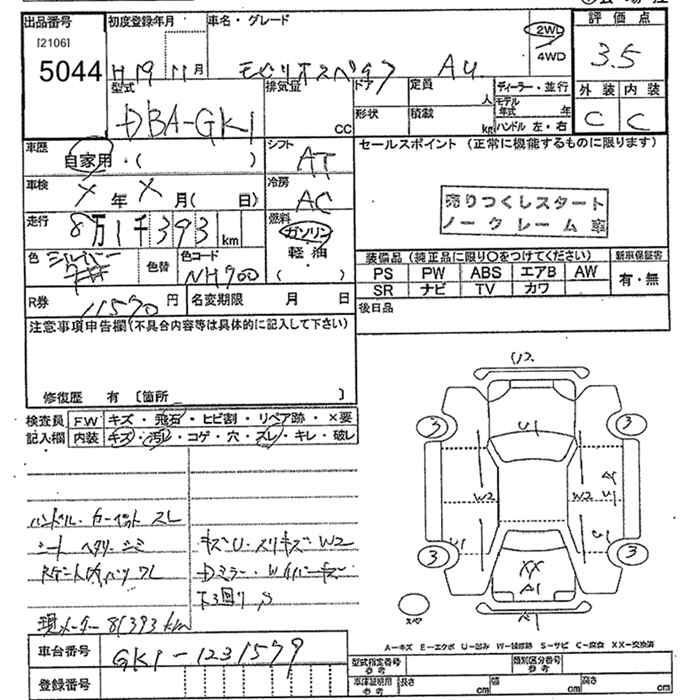 出品番号 初度登録年月 車名・グレード 2WD 4WD 評価点
[2106]
5044 H19 11月 モビリオスパイク AU 3.5
型式 排気量 ドア 定員 ディーラー・並行 外装 内装
DBA-GK1 CC 形状 積載 人 モデル年式 年 C C
kg ハンドル 左・右
車歴 自家用・( ) シフト AT セールスポイント (正常に機能するものに限ります)
車検 X年 X月( 日) 冷房 AC
売りつくしスタート
ノークレーム車
走行 8万1千393km 燃料 ガソリン 軽油 ( )
色 シルバー 色替 色コード NH700
装備品(純正品に限り○をつけてください) 新車保証書
PS PW ABS エアB AW 有・無
SR ナビ TV カワ
R券 11570円 名変期限 月 日 後日品
注意事項申告欄(不具合内容等は具体的に記入して下さい)
修復歴 有 [箇所 ]
検査員 FW キズ・飛石・ヒビ割・リペア跡・×要
記入欄 内装 キズ・汚レ・コゲ・穴・スレ・キレ・破レ
ハンドル・カーペット スレ
シート ヘタリ・シミ
現メーター 81393km
キズU・メリキズ W2
下3回り S
U2
U1
3 3
W2 W2 U1
U1 U1
3 3
XX
A1
A1
A-キズ E-エクボ U-凹み W-補修跡 S-サビ C-腐食 XX-交換済
車台番号 GK1-1231579
登録番号
型式指定番号 参考 類別区分番号 参考
車庫証明用 参考 長さ cm 幅 cm 高さ cm